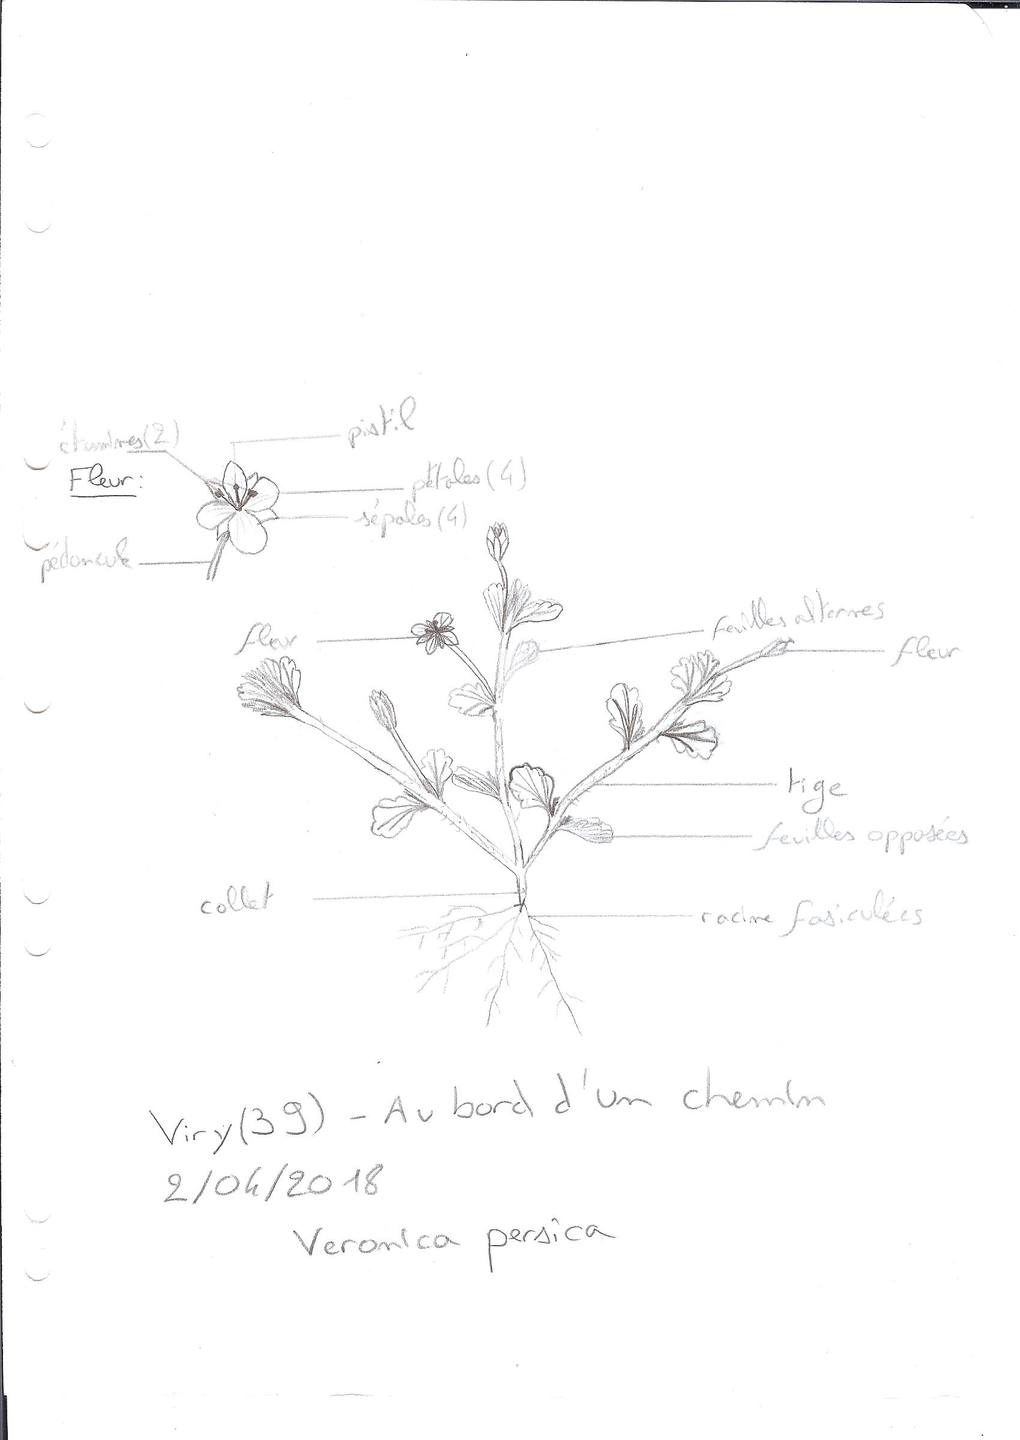 étamines(2)
pistil
Fleur:
pétales (4)
sépales (4)
pédoncule
feuilles alternes
fleur
fleur
tige
feuilles opposées
collet
racine fasiculées
Viry(39) - Au bord d'un chemin
2/04/2018
Veronica persica